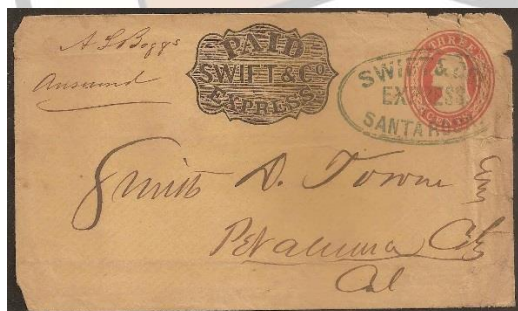 A L Boggs
Answered
PAID
SWIFT & Co
EXPRESS
THREE
CENTS
SWIFT & Co
EXPRESS
SANTA ROSA
Smith D. Towne Esq
Petaluma City
Cal